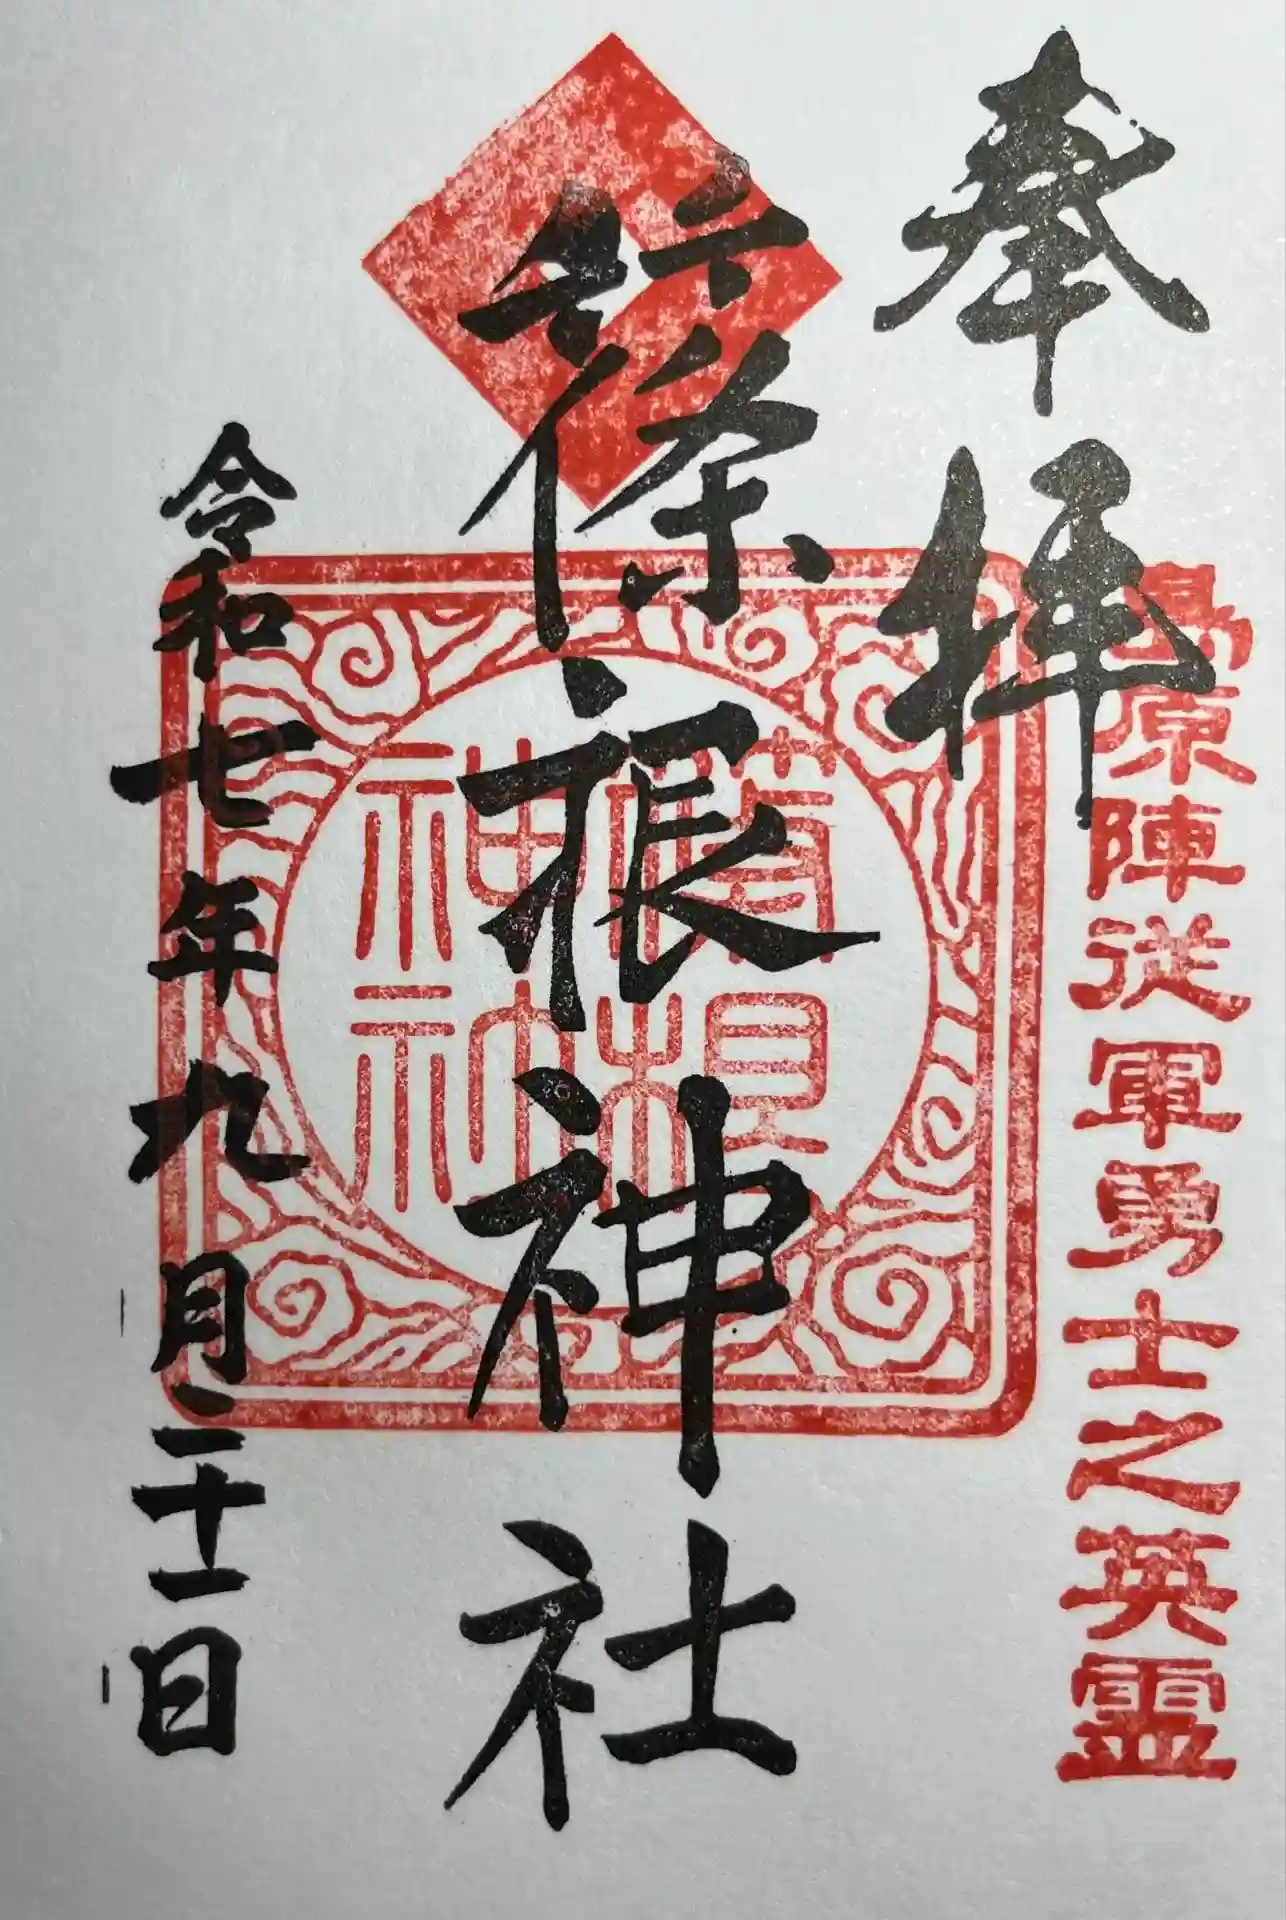 奉拝
島原陣従軍勇士之英霊
根神社
令和七年九月二十一日